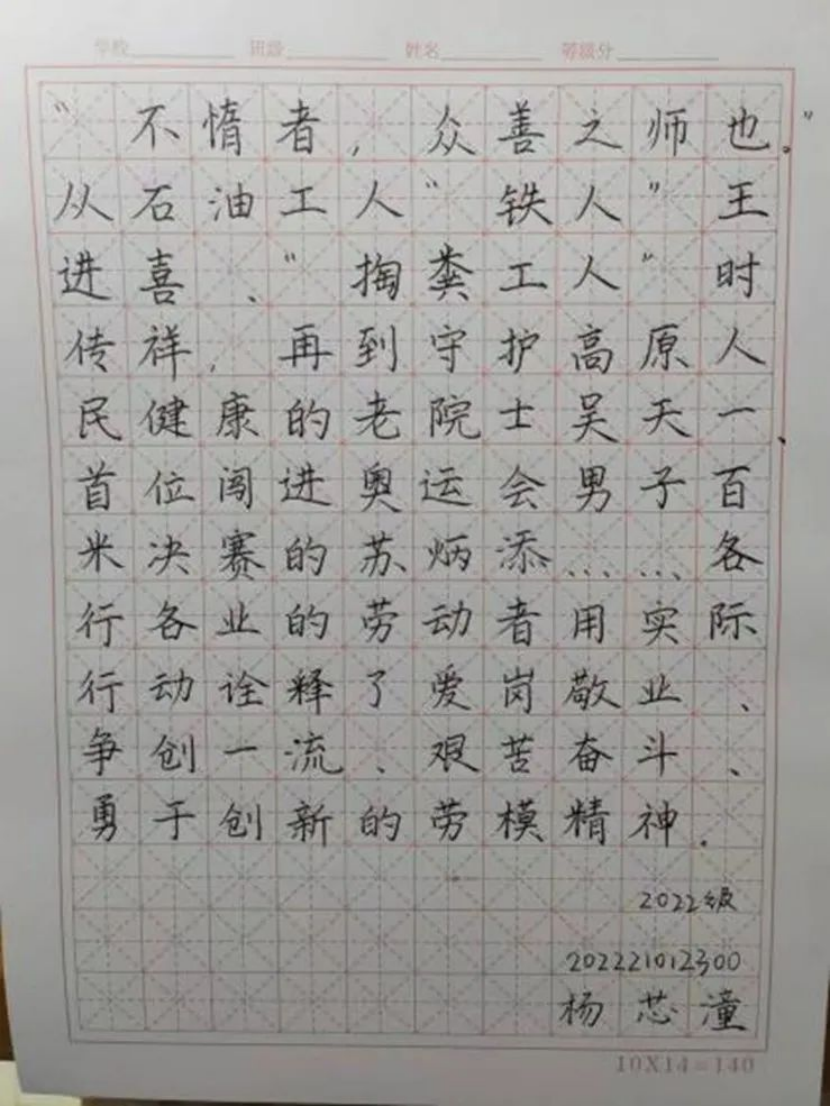 学校 班级 姓名 等级分
“不惰者，众善之师也。”
从石油工人“铁人”王
进喜、“掏粪工人”时
传祥，再到守护高原人
民健康的老院士吴天一、
首位闯进奥运会男子百
米决赛的苏炳添……各
行各业的劳动者用实际
行动诠释了爱岗敬业、
争创一流、艰苦奋斗、
勇于创新的劳模精神.
2022级
202221012300
杨芯潼
10X14=140